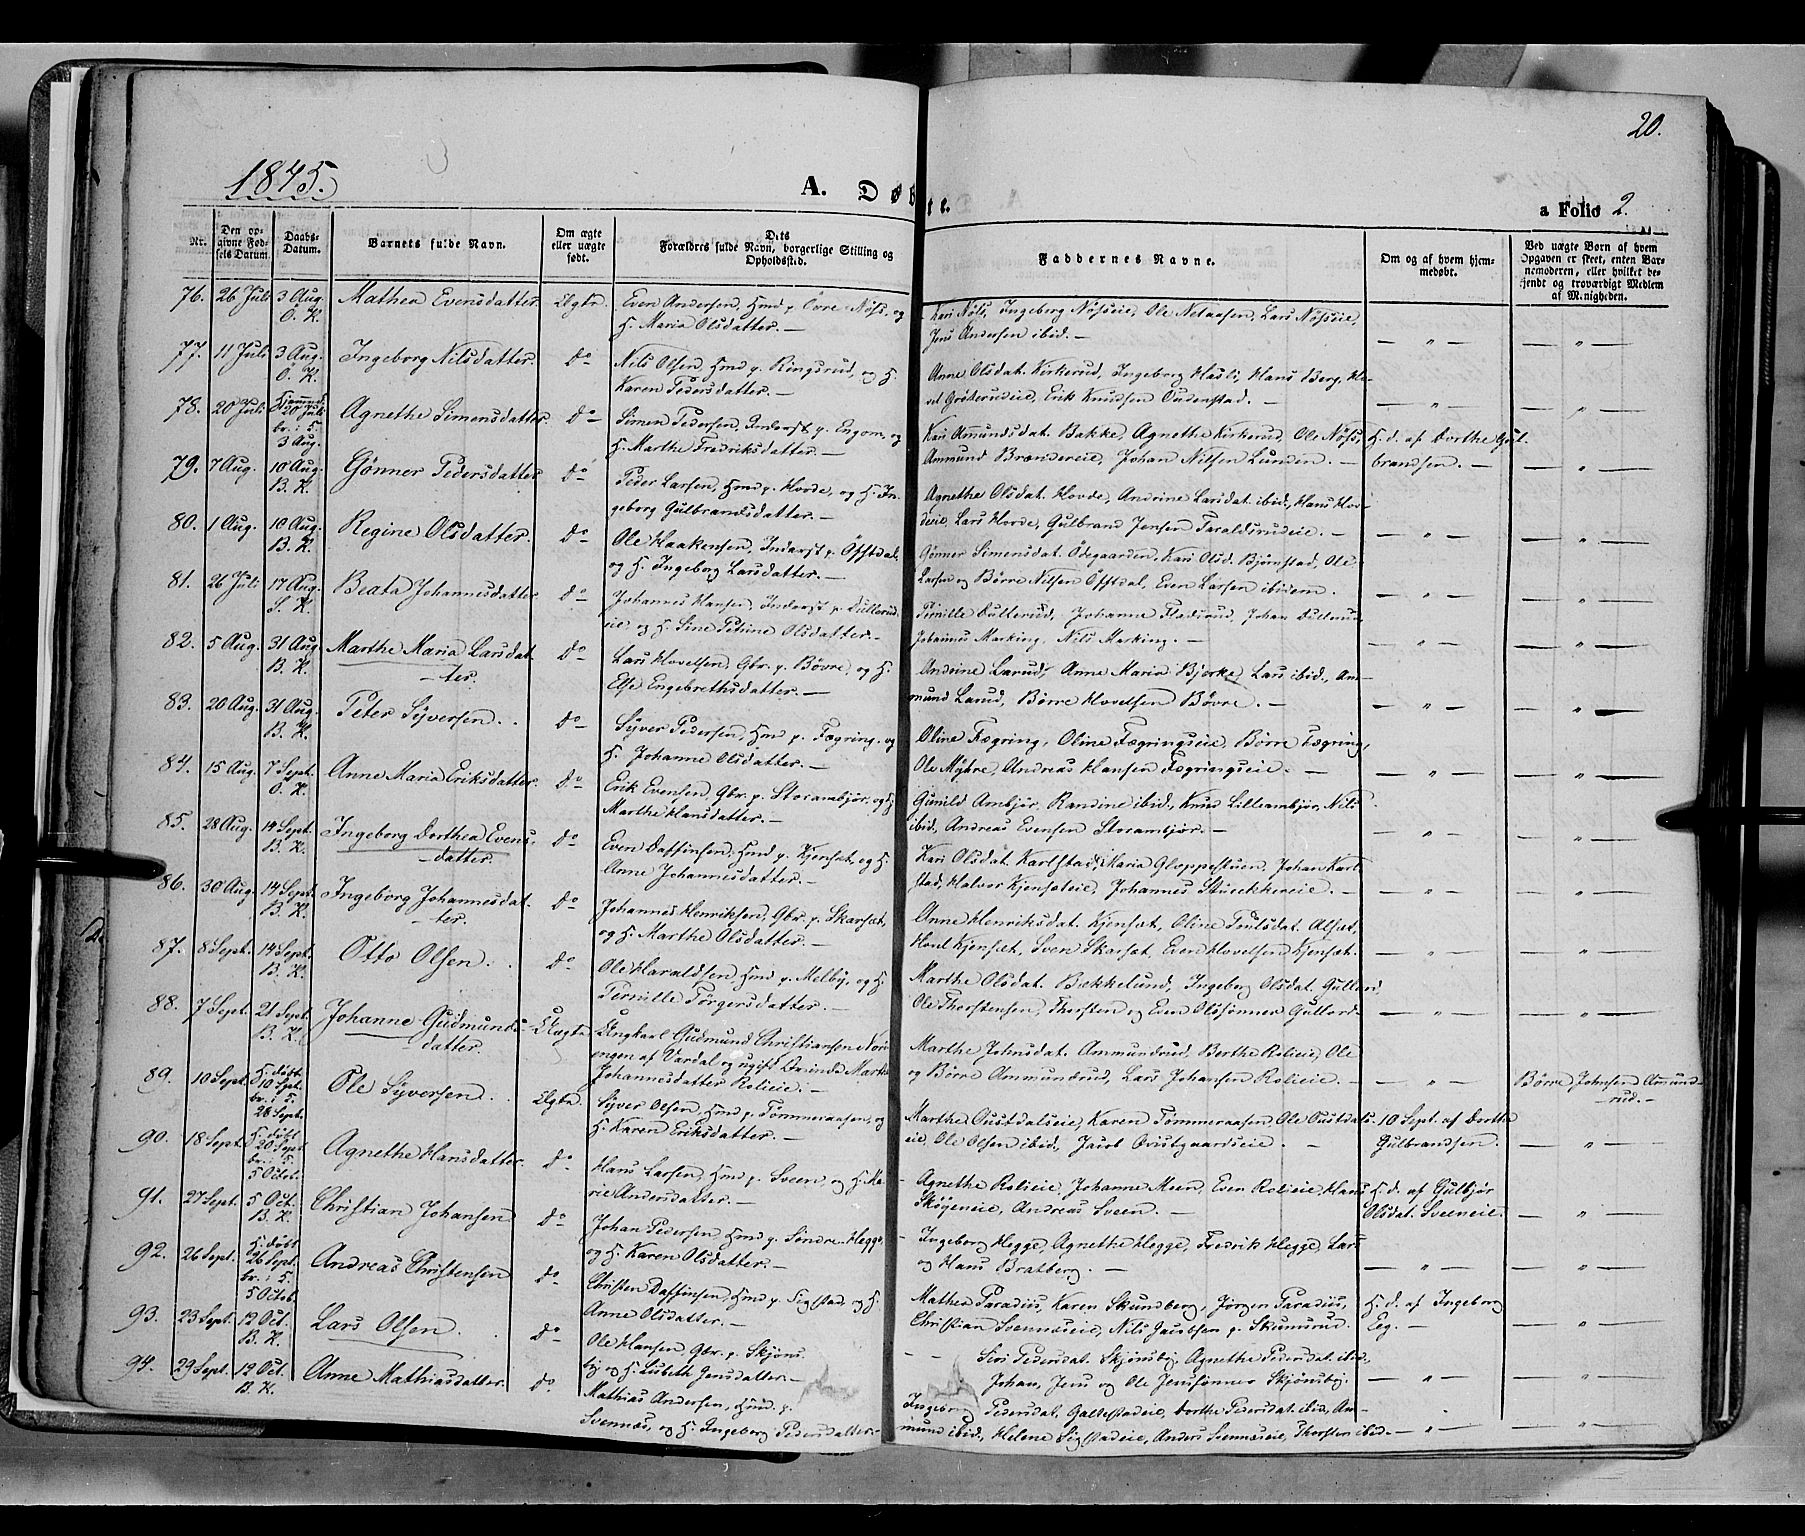 20.
1845.
A. Døbte.
a Folio 2.
Nr.
Den opgivne Fødsels Datum.
Daabs-Datum.
Barnets fulde Navn.
Om ægte eller uægte født.
Dets Forældres fulde Navn, borgerlige Stilling og Opholdssted.
Faddernes Navne.
Om og af hvem hjemmedøbt.
Ved uægte Børn af hvem Opgaven er skeet, enten Barnemoderen, eller hvilket bekjendt og troværdigt Medlem af Menigheden.
76. 26 Juli 3 Aug. O. K. Mathea Evensdatter. Ægte. Even Andersen, Hmd p. Øvre Nøss, og
H. Maria Olsdatter. —
Kari Nøss, Ingeborg Nøsseie, Ole Netaasen, Lars Nøsseie,
Jens Andersen ibid. — — " — — " —
77. 11 Juli 3 Aug. O. K. Ingeborg Nilsdatter. Do Nils Olsen, Hmd p. Ringsrud, og H.
Karen Pedersdatter. —
Anne Olsdat. Kirkerud, Ingeborg Hasli, Hans Berg, He-
vel Grøterudeie, Erik Knudsen Ouderstad. — — " — — " —
78. 20 Juli Hjemmed. 20 Juli br. i K. 3 Aug. Agnethe Simensdatter. Do Simen Pedersen, Inderst p. Engom, og
H. Marthe Fredriksdatter. —
Kari Ammundsdat. Bakke, Agnethe Kirkerud, Ole Nøss, H. d. af Dorthe Gul-
Ammund Brændereie, Johan Nilsen Lunden. — brandsen. — — " —
79. 7 Aug. 10 Aug. B. K. Gønner Pedersdatter Do Peder Larsen, Hmd p. Hovde, og H. In-
geborg Gulbrandsdatter. —
Agnethe Olsdat. Hovde, Andrine Larsdat. ibid, Hans Hov-
deeie, Lars Hovde, Gulbrand Jensen Taraldsrudeie. — — " — — " —
80. 1 Aug. 10 Aug. B. K. Regine Olsdatter. Do Ole Haakensen, Inderst p. Øfstdal,
og H. Ingeborg Larsdatter. —
Gønner Simensdat. Ødegaarden, Kari Olsd. Bjørnstad, Ole
Larsen og Børre Nilsen Øfstdal, Even Larsen ibidem. — " — — " —
81. 26 Juli 17 Aug. S. K. Beata Johannesdatter Do Johannes Hansen, Inderst p. Dullerud-
eie og H. Sine Petrine Olsdatter. —
Pernille Dullerud, Johanne Fladsrud, Johan Dullerud
Johannes Marking, Nils Marking. — — " — — " —
82. 5 Aug. 31 Aug. B. K. Marthe Maria Larsdat-
ter. Do Lars Hovelsen, Gbr. p. Bøvre, og H.
Else Engebrethsdatter. —
Andrine Larud, Anne Maria Bjerke, Lars ibid., Am-
mund Larud, Børre Hovelsen Bøvre. — — " — — " —
83. 20 Aug. 31 Aug. B. K. Peter Syversen. Do Syver Pedersen, Hmd p. Fægring, og
H. Johanne Olsdatter. —
Oline Fægring, Oline Fægringseie, Børre Fægring,
Ole Myhre, Andreas Hansen Fægringseie. — — " — — " —
84. 15 Aug. 7 Sept. O. K. Anne Maria Eriksdatter. Do Erik Evensen, Gbr. p. Storambjør, og H.
Marthe Hansdatter. —
Gunild Ambjør, Randine ibid, Knud Lilleambjør, Nils
ibid, Andreas Evensen Storambjør. — — " — — " —
85. 28 Aug. 14 Sept. B. K. Ingeborg Dorthea Evens-
datter. Do Even Daffinsen, Hmd p. Kjensæt, og H.
Anne Johannesdatter. —
Kari Olsdat. Karlstad, Maria Gloppestuen, Johan Karl-
stad, Halvor Kjensæteie, Johannes Stuekkereie. — — " — — " —
86. 30 Aug. 14 Sept. B. K. Ingeborg Johannesdat-
ter. Do Johannes Henriksen, Gbr. p. Skarsæt,
og H. Marthe Olsdatter. —
Anne Henriksdat. Kjensæt, Oline Poulsdat. Alfsæt,
Houl Kjensæt, Sven Skarsæt, Even Hovelsen Kjensæt. — " — — " —
87. 8 Sept. 14 Sept. B. K. Otto Olsen. Do Ole Haraldsen, Hmd p. Melby, og H.
Pernille Törgersdatter. —
Marthe Olsdat. Bækkelund, Ingeborg Olsdat. Gullord,
Ole Thorstensen, Thorsten og Even Olssønner Gullord — — " — — " —
88. 7 Sept. 21 Sept. B. K. Johanne Gudmunds-
datter. Uægte Ungkarl Gudmund Christiansen Nør-
engen af Vardal og ugift Qvinde Marthe
Johannesdatter Rolieie. —
Marthe Johnsdat. Ammundrud, Berthe Rolieie, Ole
og Børre Ammundrud, Lars Johansen Rolieie. — — " — Børre Johnsen Amund-
rud. —
89. 10 Sept. H. døbt 10 Sept. br. i K. 28 Septb. Ole Syversen. Ægte. Syver Olsen, Hmd p. Tømmeraasen, og
H. Karen Eriksdatter. —
Marthe Oustdalseie, Karen Tømmeraasen, Ole Oustdals- 10 Sept. af Dorthe
eie, Ole Olsen ibid, Jacob Ovistgaardseie. — Gulbrandsen. — " —
90. 18 Sept. H. døbt 20 Sept. br. i K. 5 Octob. Agnethe Hansdatter. Do Hans Larsen, Hmd p. Sveen, og H. Ma-
rie Andersdatter. —
Agnethe Rolieie, Johanne Moen, Even Rolieie, Hans H. d. af Gulbjør
Skøyeneie, Andreas Sveen. — Olsdat. Sveeneie. — " —
91. 27 Sept. 5 Oct. B. K. Christian Johansen. Do Johan Pedersen, Hmd p. Søndre Hegge,
og H. Karen Olsdatter. —
Ingeborg Hegge, Agnethe Hegge, Fredrik Hegge, Lars
og Hans Bratberg. — — " — — " —
92. 26 Sept. H. døbt 26 Sept. br. i K. 5 Octob. Andreas Christensen Do Christen Daffinsen, Hmd p. Sigstad, og H.
Anne Olsdatter. —
Mathea Paradiis, Karen Skundberg, Jørgen Paradiis, H. d. af Ingeborg
Christian Svennæseie, Nils Jacobsen p. Skumsrud. Eeg. — — " —
93. 23 Sept. 12 Oct. B. K. Lars Olsen. Do Ole Hansen, Gbr. p. Skjøns-
by og H. Lisbeth Jensdatter. —
Siri Pedersdat. Skjønsby, Agnethe Pedersdat. ibid.,
Johan, Jens og Ole Jenssønner Skjønsby. — " — — " —
94. 29 Sept. 12 Oct. B. K. Anne Mathiasdatter. Do Mathias Andersen, Hmd. p.
Svennæs, og H. Ingeborg Pedersdatter. —
Ingeborg Pedersdat. Galtestadeie, Dorthe Pedersdat. ibid, Am-
mund ibid, Helene Sigstadeie, Anders Svennæseie, Thorsten ibid. — — " — — " —